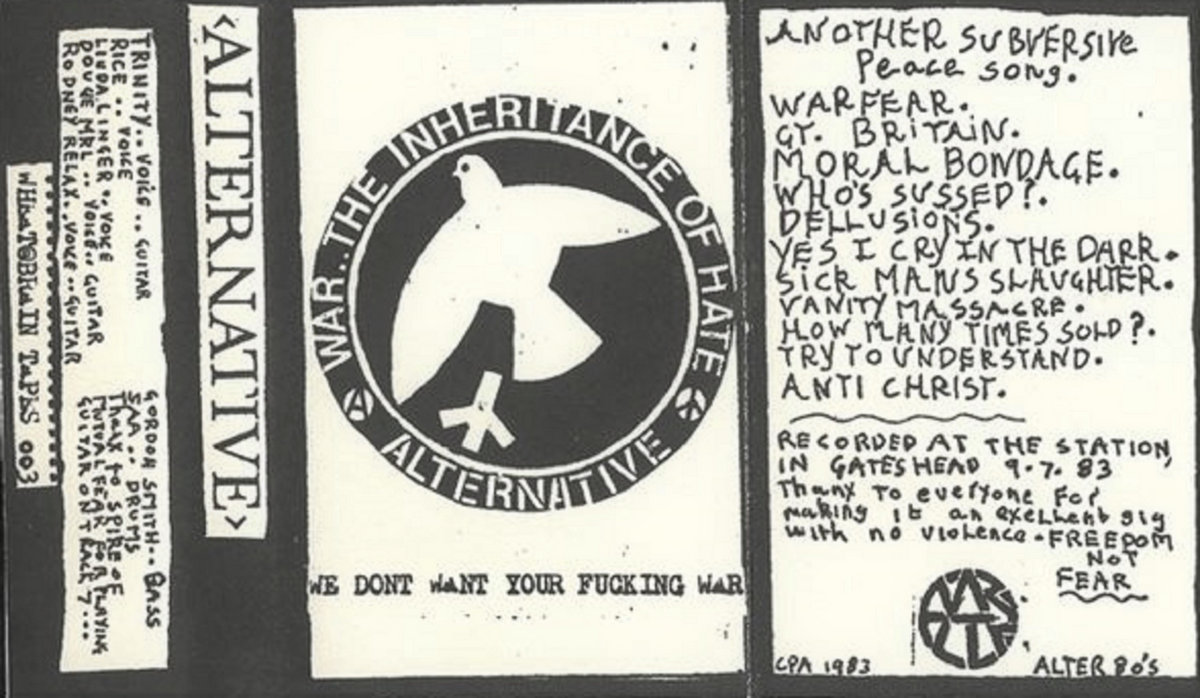 TRINITY.. VOICE .. GUITAR
RICE .. VOICE
LINDA LINGER .. VOICE
DOUGE MRL .. VOICE.. GUITAR
RODNEY RELAX.. VOICE .. GUITAR
GORDON SMITH.. BASS
SAA .. DRUMS
Thanx to SPIRE OF
MUTUAL FEAR FOR PLAYING
GUITAR ON TRACK 7...
WHaT@BRaIN TaPES 003
<ALTERNATIVE>
WAR..THE INHERITANCE OF HATE
ALTERNATIVE
WE DONT WaNT YOUR FUCKING WaR
ANOTHER SUBVERSIVe
Peace song.
WARFEAR.
GT. BRiTAiN.
MORAL BONDAGE.
WHO'S SUSSED?.
DELLUSiONS.
YES I CRY IN THE DARK.
SiCK MANS SLAUGHTER.
VANITY MASSACRE.
HOW MANY TIMES SOLD?.
TRY TO UNDERSTAND.
ANTI CHRIST.
RECORDED AT THE STATION,
IN GATESHEAD 9.7.83
Thanx To everyone For
making it an exellent gig
with no violence. FREEDOM
NOT
FEAR
CPA 1983
ALTER 80'S